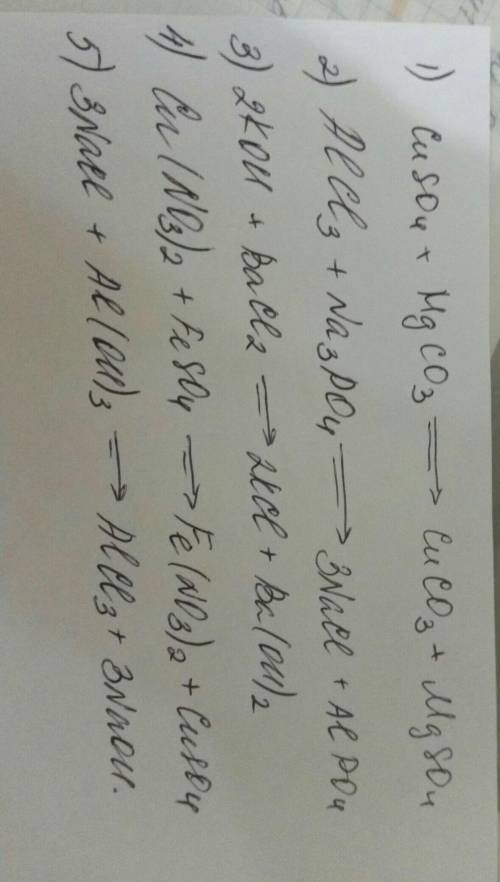 1) CuSO4 + MgCO3 ⟹ CuCO3 + MgSO4
2) AlCl3 + Na3PO4 ⟹ 3NaCl + AlPO4
3) 2KOH + BaCl2 ⟹ 2KCl + Ba(OH)2
4) Cu(NO3)2 + FeSO4 ⟹ Fe(NO3)2 + CuSO4
5) 3NaCl + Al(OH)3 ⟹ AlCl3 + 3NaOH.